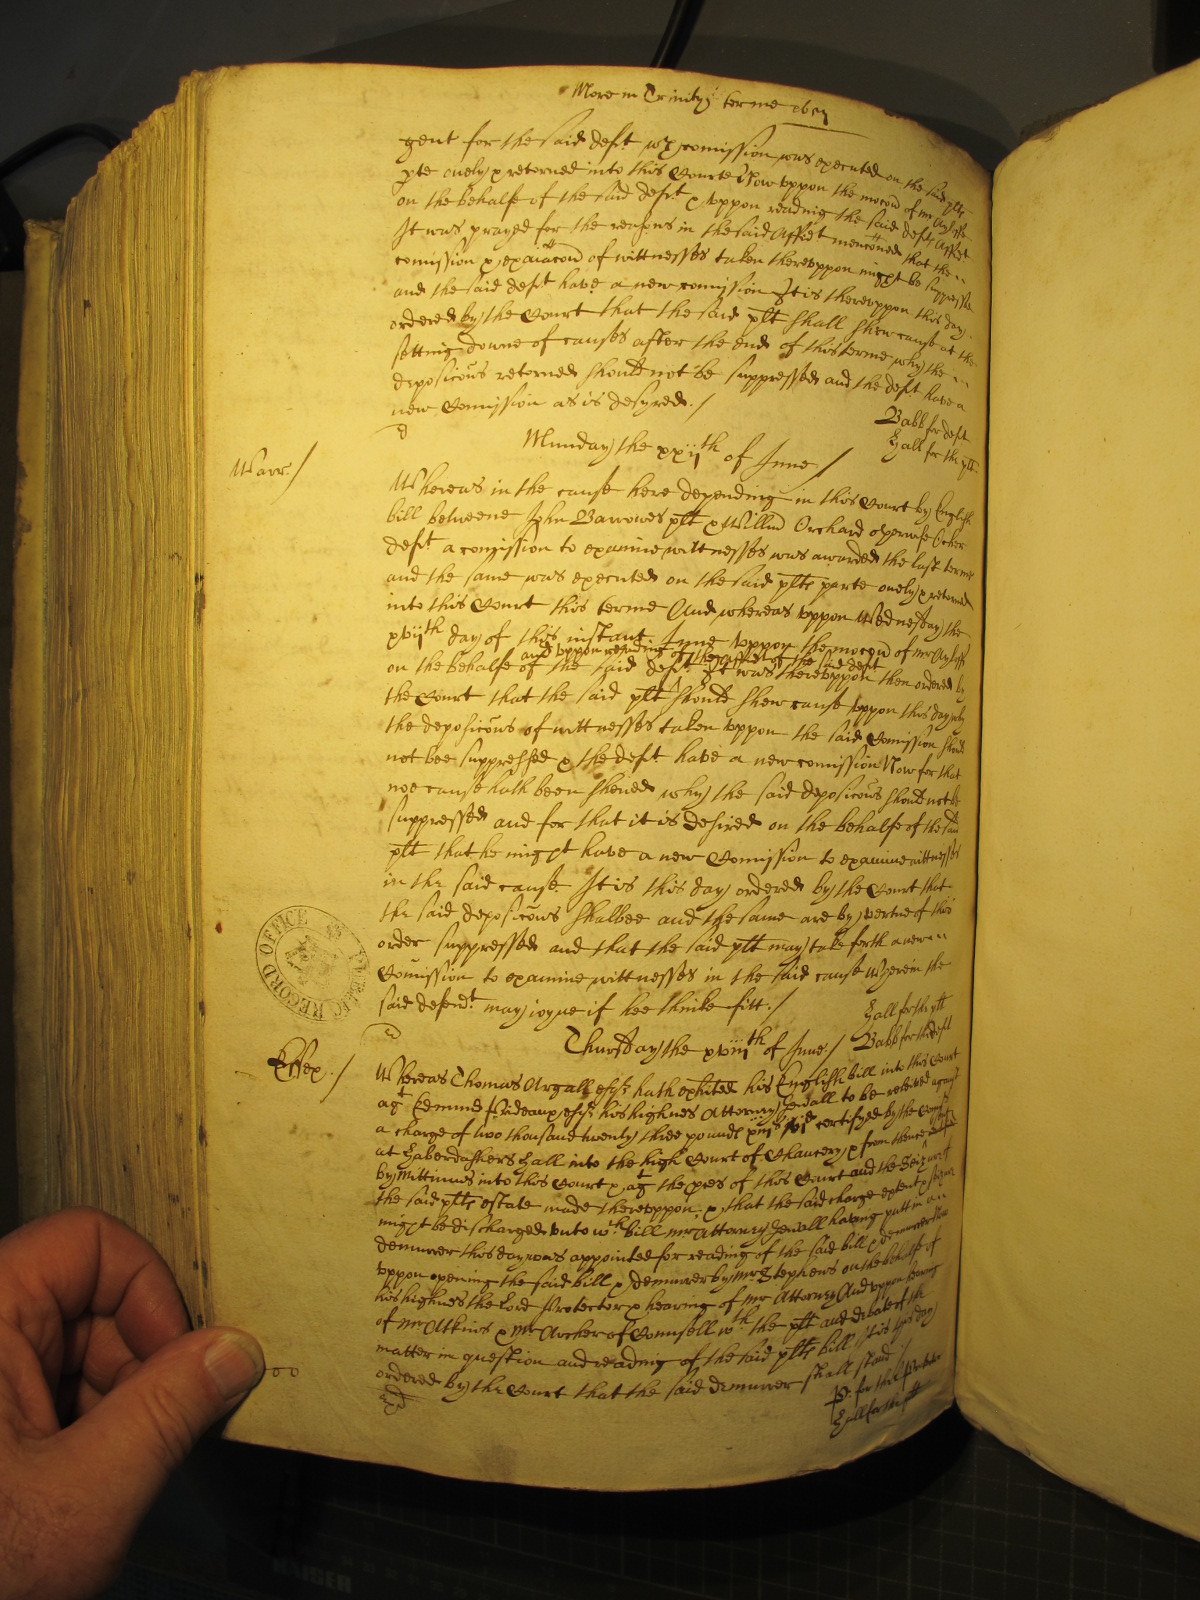 More in Trinity terme 1657
gent for the said deft wch comission was executed on the said plts
pte onely & returned into this Courte Now uppon the mocon of mr Ayloffe
on the behalfe of the said deft & uppon reading the said defts Affidt
It was prayed for the reasons in the said Affidt menconed that the
comission & exaiacon of wittnesses taken thereuppon might be suppressed
and the said deft have a new comission It is thereuppon this day
ordered by the Court that the said plt shall shew cause at the
setting downe of causes after the end of this terme why the
deposicons returned should not be suppressed and the deft have a
new Comission as is desyred./
Babb for deft
Hall for the plt
Munday the xxijth of June /
Warr:/
Whereas in the cause here depending in this Court by English
bill betweene John Barrowes plt & Willm Orchard otherwise Ocher
deft a comission to examine wittnesses was awarded the last terme
and the same was executed on the said plts parte onely & returned
into this Court this terme And whereas uppon Wednesday the
xvijth day of this instant June uppon the mocon of mr Ayloffe
and uppon reading of the affidt of the said deft
on the behalfe of the said deft It was thereuppon then ordered by
the Court that the said plt should shew cause uppon this day why
the deposicons of wittnesses taken uppon the said Comission should
not bee suppressed & the deft have a new comission Now for that
noe cause hath been shewed why the said deposicons should not be
suppressed and for that it is desired on the behalfe of the said
plt that he might have a new Comission to examine wittnesses
in the said cause It is this day ordered by the Court that
the said deposicons shalbee and the same are by vertue of this
order suppressed and that the said plt may take forth a new
Comission to examine wittnesses in the said cause Wherein the
said defendt may joyne if hee thinke fitt./
Hall for the plt
Babb for the deft
Thursday the xviijth of June /
Essex./
Whereas Thomas Argall esqr hath exhited his English bill into this Court
agt Edmund Prideaux esqr his highnes Attorney Generall to be releived against
a charge of two thousand twenty three pounds xiijs certifyed by the Comrs
at Haberdashers Hall into the high Court of Chauncery & from thence
by Mittimus into this Court & agt the pces of this Court and the Seizure of
the said plts estate made thereuppon & that the said charge extent &
might be discharged unto wch bill mr Attorney Generall having putt in an
demurrer this day was appointed for reading of the said bill & demurrer Now
uppon opening the said bill & demurrer by mr Stephens on the behalfe of
his highnes the Lord Protector & hearing of mr Attorney And uppon hearing
of mr Atkins & mr Archer of Counsell wth the plt and debate of the
matter in question and reading of the said plts bill It is this day
ordered by the Court that the said demurrer shall stand /
for the Lo: Protector
Hall for the plt
PUBLIC RECORD OFFICE